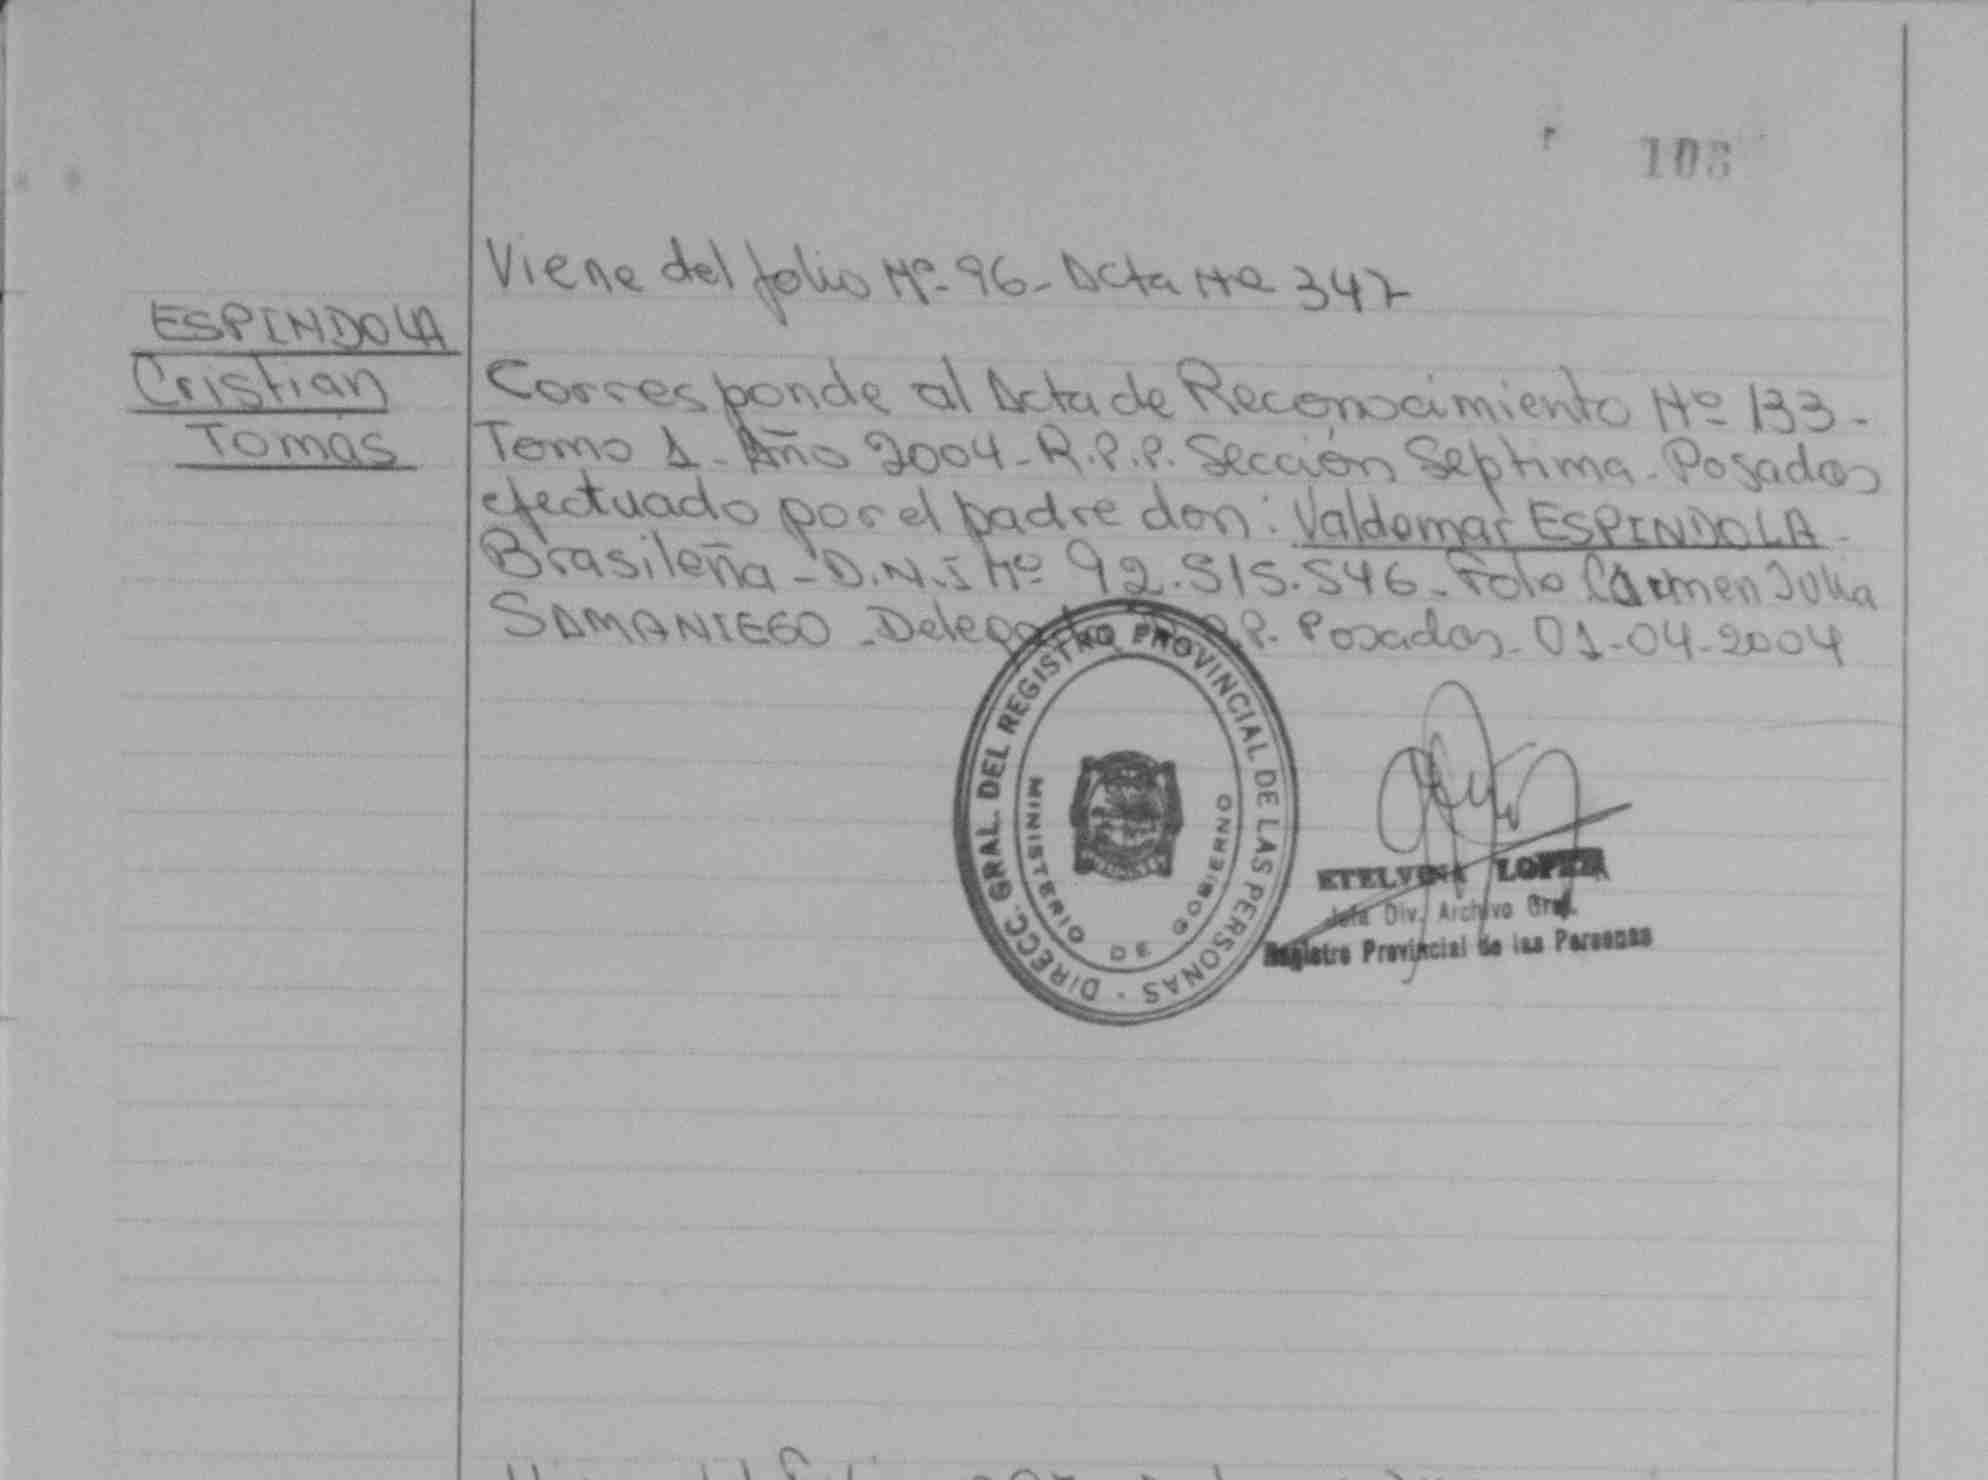 103
Viene del folio Nº 96 - Acta Nº 347
ESPINDOLA
Cristian
Tomás
Corresponde al Acta de Reconocimiento Nº 133 -
Tomo 1 - Año 2004 - R.P.P. Sección Septima - Posadas
efectuado por el padre don: Valdemar ESPINDOLA -
Brasileña - D.N.I Nº 92.515.546 - Fdo Carmen Julia
SAMANIEGO - P. Posadas - 01-04-2004
DIRECC. GRAL. DEL REGISTRO PROVINCIAL DE LAS PERSONAS -
MINISTERIO DE GOBIERNO
ETELVINA LOPEZ
Jefa Div. Archivo Gral.
Registro Provincial de las Personas